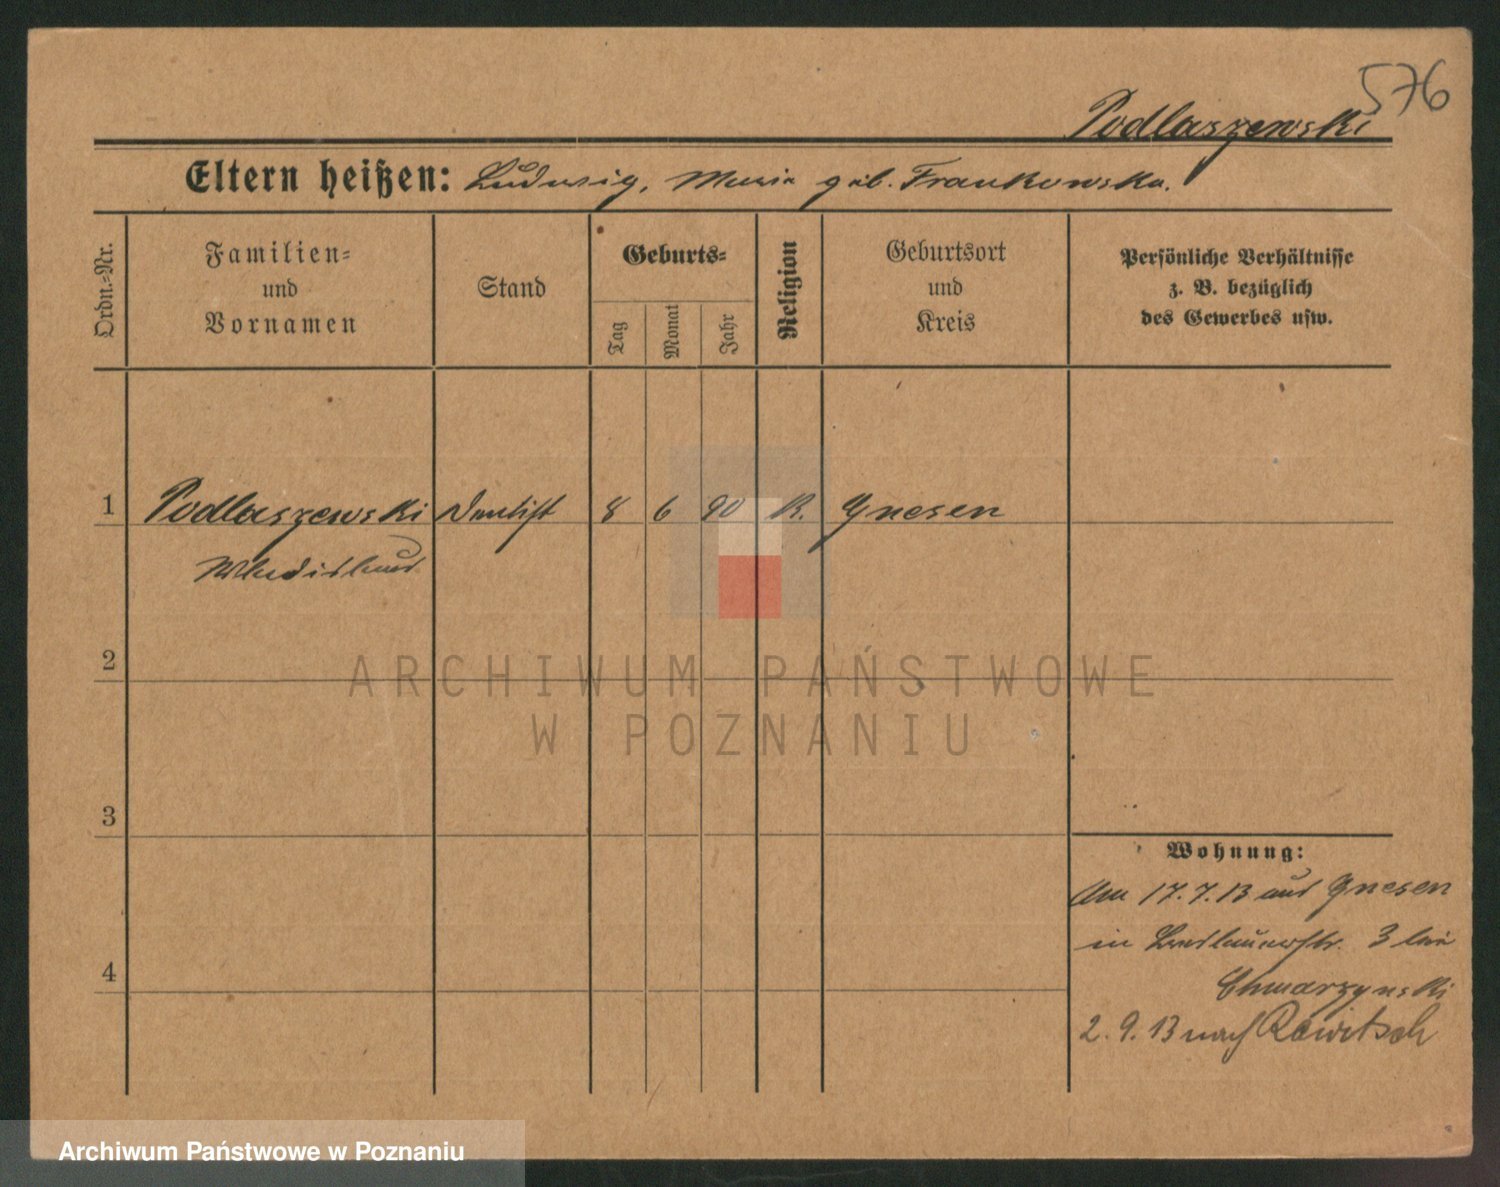 576
Podlaszewski
Eltern heißen: Ludwig, Maria geb. Frankowska.
Ordn.-Nr.
Familien-
und
Vornamen
Stand
Geburts-
Tag
Monat
Jahr
Religion
Geburtsort
und
Kreis
Persönliche Verhältnisse
z. B. bezüglich
des Gewerbes usw.
1 Podlaszewski Dentist 8 6 90 K. Gnesen
Wladislaus
2
ARCHIWUM PAŃSTWOWE
W POZNANIU
3
Wohnung:
Am 17.7.13 aus Gnesen
in 3 bei
Chmarzynski
4
2. 9. 13 nach Rawitsch
Archiwum Państwowe w Poznaniu